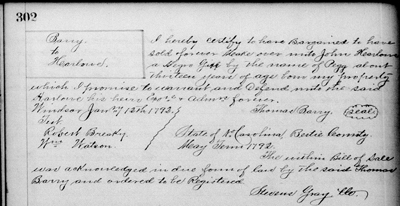 302
Barry
to
Hearlone
I hereby certify to have Bargained to have
sold forever Made over unto John Hearlone
a Negro Girl by the name of Pegg about
thirteen years of age bour my property
which I promise to warrant and Defend unto the said
Harlone his heirs Exors & Admrs forever.
Windsor Jany 12th 1792. Thomas Barry. (seal)
Test
Robert Bready
Wm Watson
State of N. Carolina, Bertie County
May Term 1792
The within Bill of Sale
was acknowledged in due form of law by the said Thomas
Barry and ordered to be Registered
Stevens Gray Clk.